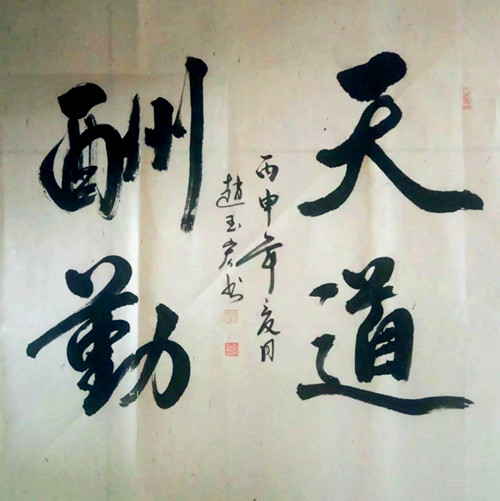 天道
酬勤
丙申年夏月
趙玉宏书